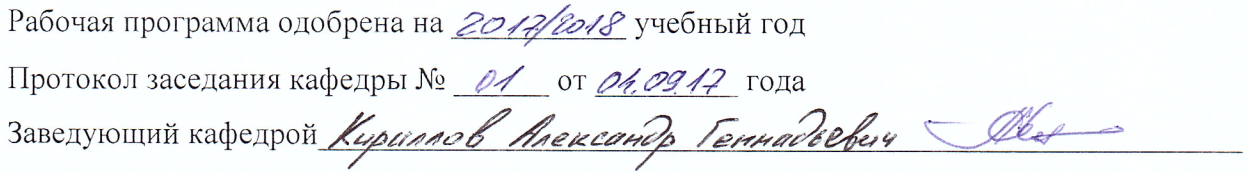 Рабочая программа одобрена на 2017/2018 учебный год
Протокол заседания кафедры № 01 от 01.09.17 года
Заведующий кафедрой Кириллов Александр Геннадьевич